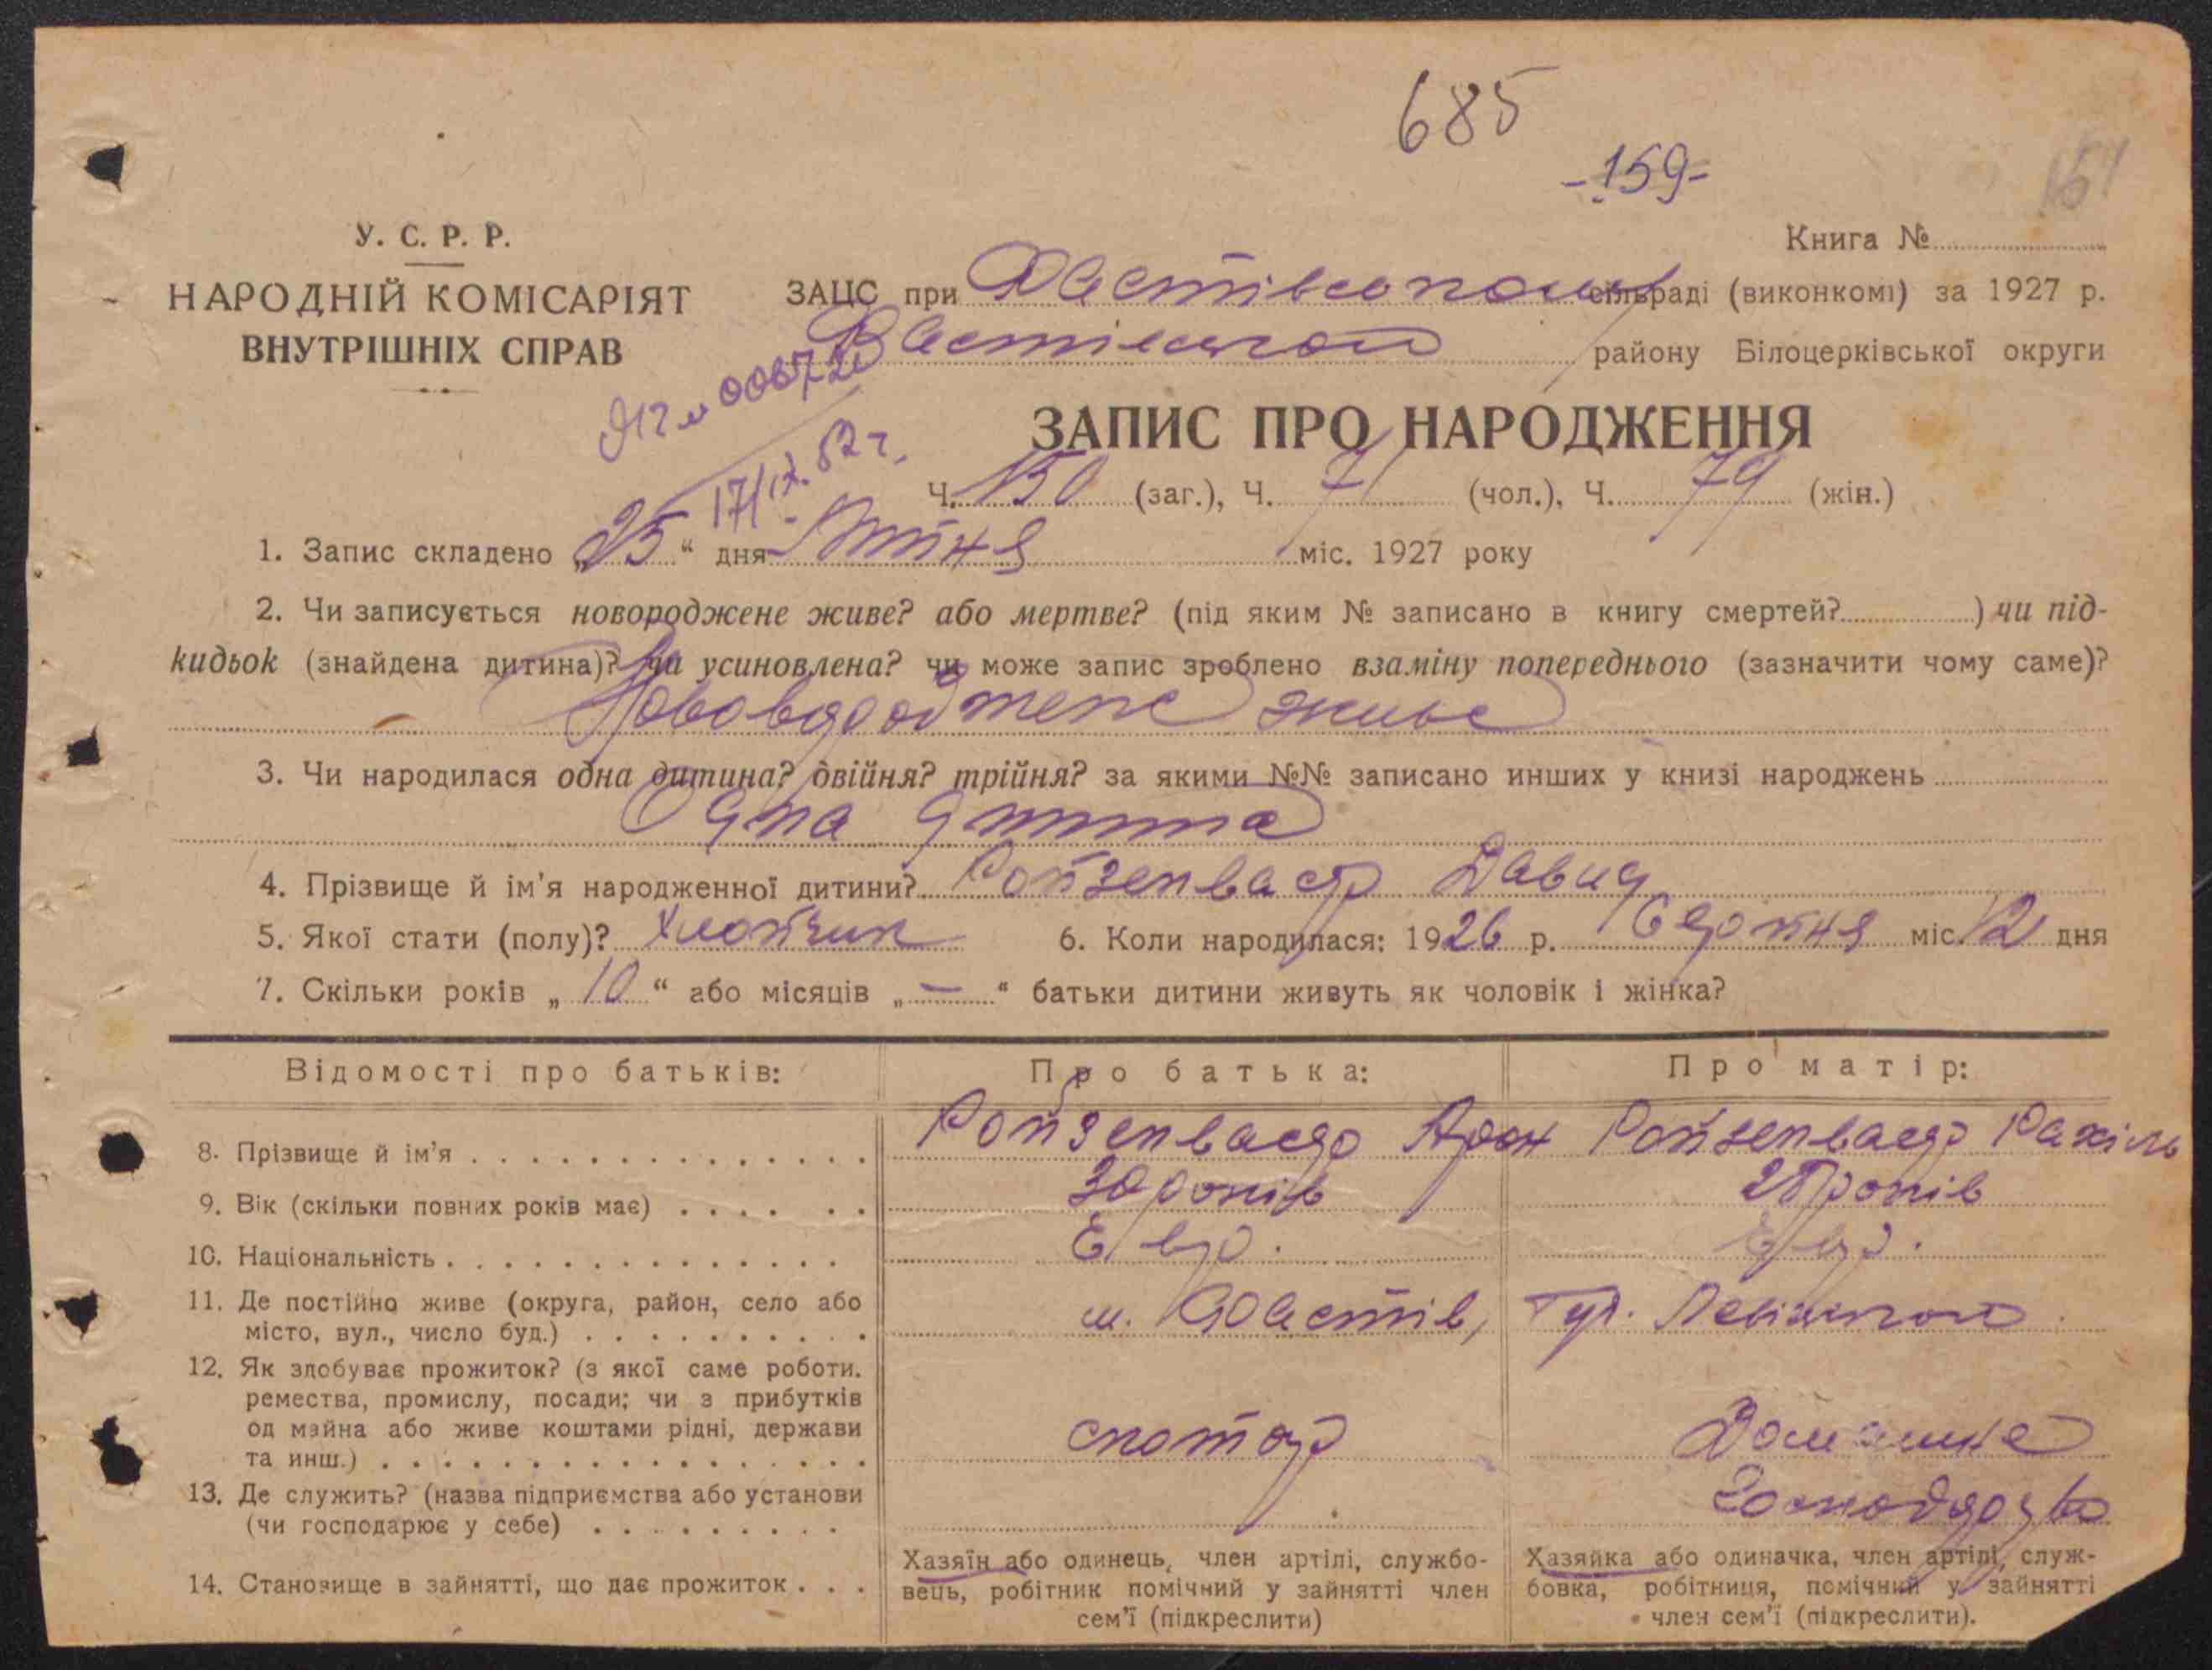 685
-159-
151
Книга №
У. С. Р. Р.
НАРОДНІЙ КОМІСАРІЯТ
ВНУТРІШНІХ СПРАВ
ЗАЦС при Хвастівською сільраді (виконкомі) за 1927 р.
Хвастівського району Білоцерківської округи
17/IX. 52 г.
ЗАПИС ПРО НАРОДЖЕННЯ
Ч. 150 (заг.), Ч. 71 (чол.), Ч. 79 (жін.)
1. Запис складено „25“ дня міс. 1927 року
2. Чи записується новороджене живе? або мертве? (під яким № записано в книгу смертей? ) чи під-
кидьок (знайдена дитина)? чи усиновлена? чи може запис зроблено взаміну попереднього (зазначити чому саме)?
живе
3. Чи народилася одна дитина? двійня? трійня? за якими №№ записано инших у книзі народжень
Одна дитина
4. Прізвище й ім'я народженної дитини? Ройзенвасер Давид
5. Якої стати (полу)? Хлопчик 6. Коли народилася: 1926 р. Серпня міс. 12 дня
7. Скільки років „ 10 “ або місяців „ — “ батьки дитини живуть як чоловік і жінка?
Відомості про батьків: Про батька: Про матір:
8. Прізвище й ім'я Ройзенвасер Арон Ройзенвасер Рахіль
9. Вік (скільки повних років має) 30 років 28 років
10. Національність Евр. Евр.
11. Де постійно живе (округа, район, село або
місто, вул., число буд.) м. Хвастів,
12. Як здобуває прожиток? (з якої саме роботи.
ремества, промислу, посади; чи з прибутків
од майна або живе коштами рідні, держави
та инш.) Домашнє
13. Де служить? (назва підприємства або установи
(чи господарює у себе)
14. Становище в зайнятті, що дає прожиток
Хазяїн або одинець, член артілі, службо-
вець, робітник помічний у зайнятті член
сем'ї (підкреслити)
Хазяйка або одиначка, член артілі, служ-
бовка, робітниця, помічний у зайнятті
член сем'ї (підкреслити).